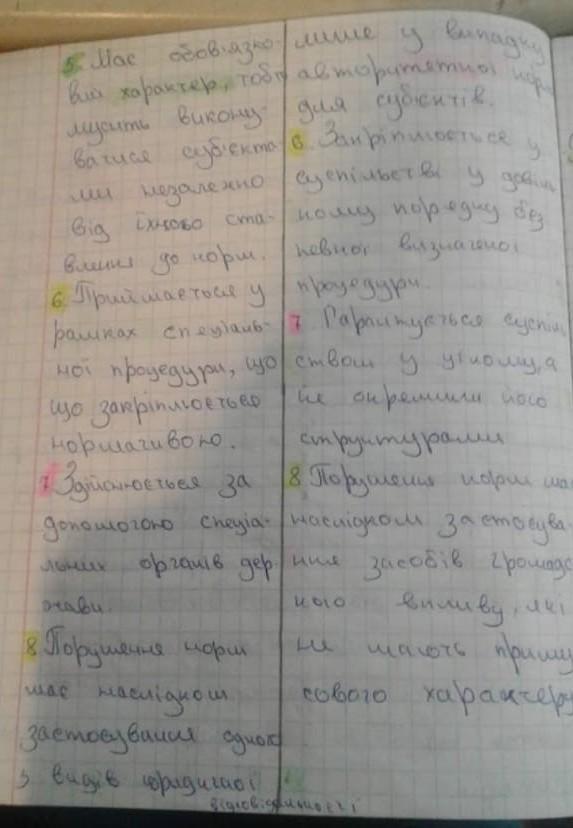 5. Має обов'язко-
вий характер, тобто
мусить викону-
ватися суб'єкта-
ми незалежно
від їхнього ста-
влення до норм.
6. Приймається у
рамках спеціаль-
ної процедури, що
що закріплюється
нормативою.
7. Здійснюється за
допомогою спеціа-
льних органів дер
жави.
8 Порушення норм
має наслідком
застосування однієї
з видів юридичної
відповідальності
лише у випадку
авторитетної норм
для суб'єктів.
6. Закріплюється у
суспільстві у довіль
ному порядку без
певної визначеної
процедури.
7. Гарантується суспіль
ством у цілому, а
не окремими його
структурами
8 Порушення норм має
наслідком застосува
ння засобів громадсь
кого впливу, які
не мають приму
сового характеру